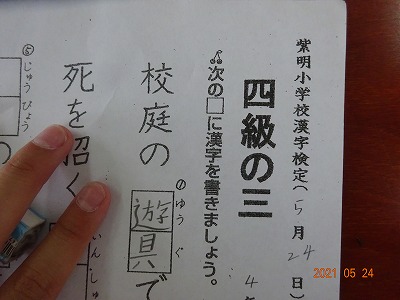 紫明小学校漢字検定(5月24日)
四級の三
4
次の□に漢字を書きましょう。
① ゆうぐ
校庭の遊具で
いんしゅ
死を招く
⑤ じゅうびょう
の
2021 05 24